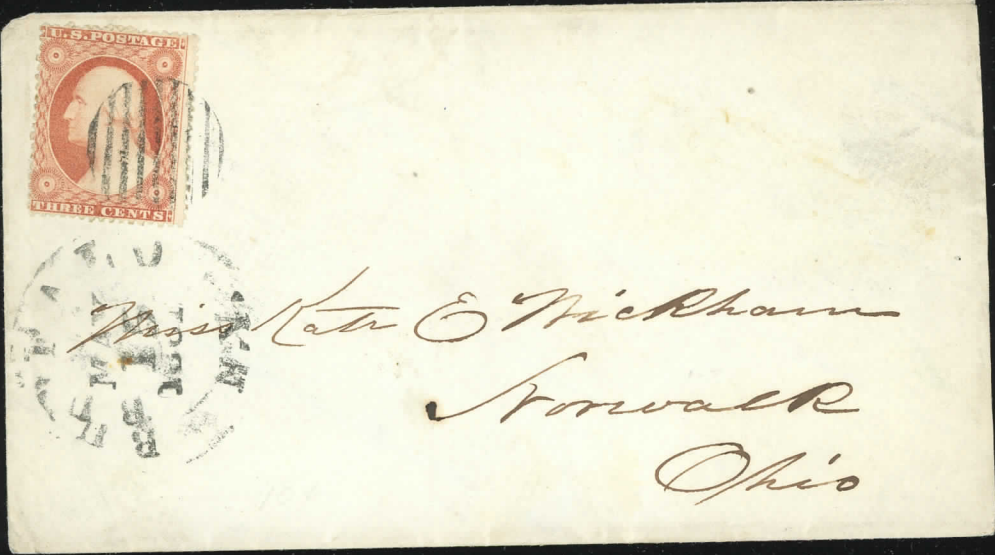 U.S. POSTAGE
THREE CENTS
MAY
Miss Kate E Wickham
Norwalk
Ohio